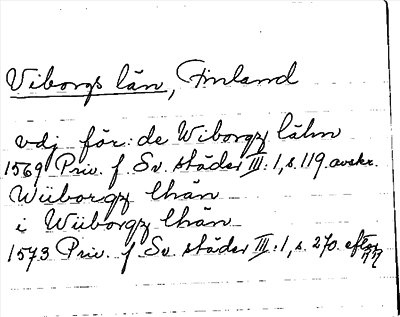 Viborgs län, Finland
vdj för: de Wiborgz lähn
1569 Priv. f. Sv. städer III:1, s. 119. avskr.
Wiiborgz lhän
i Wiiborgz lhän
1573 Priv. f. Sv. städer III:1, s. 270. efter